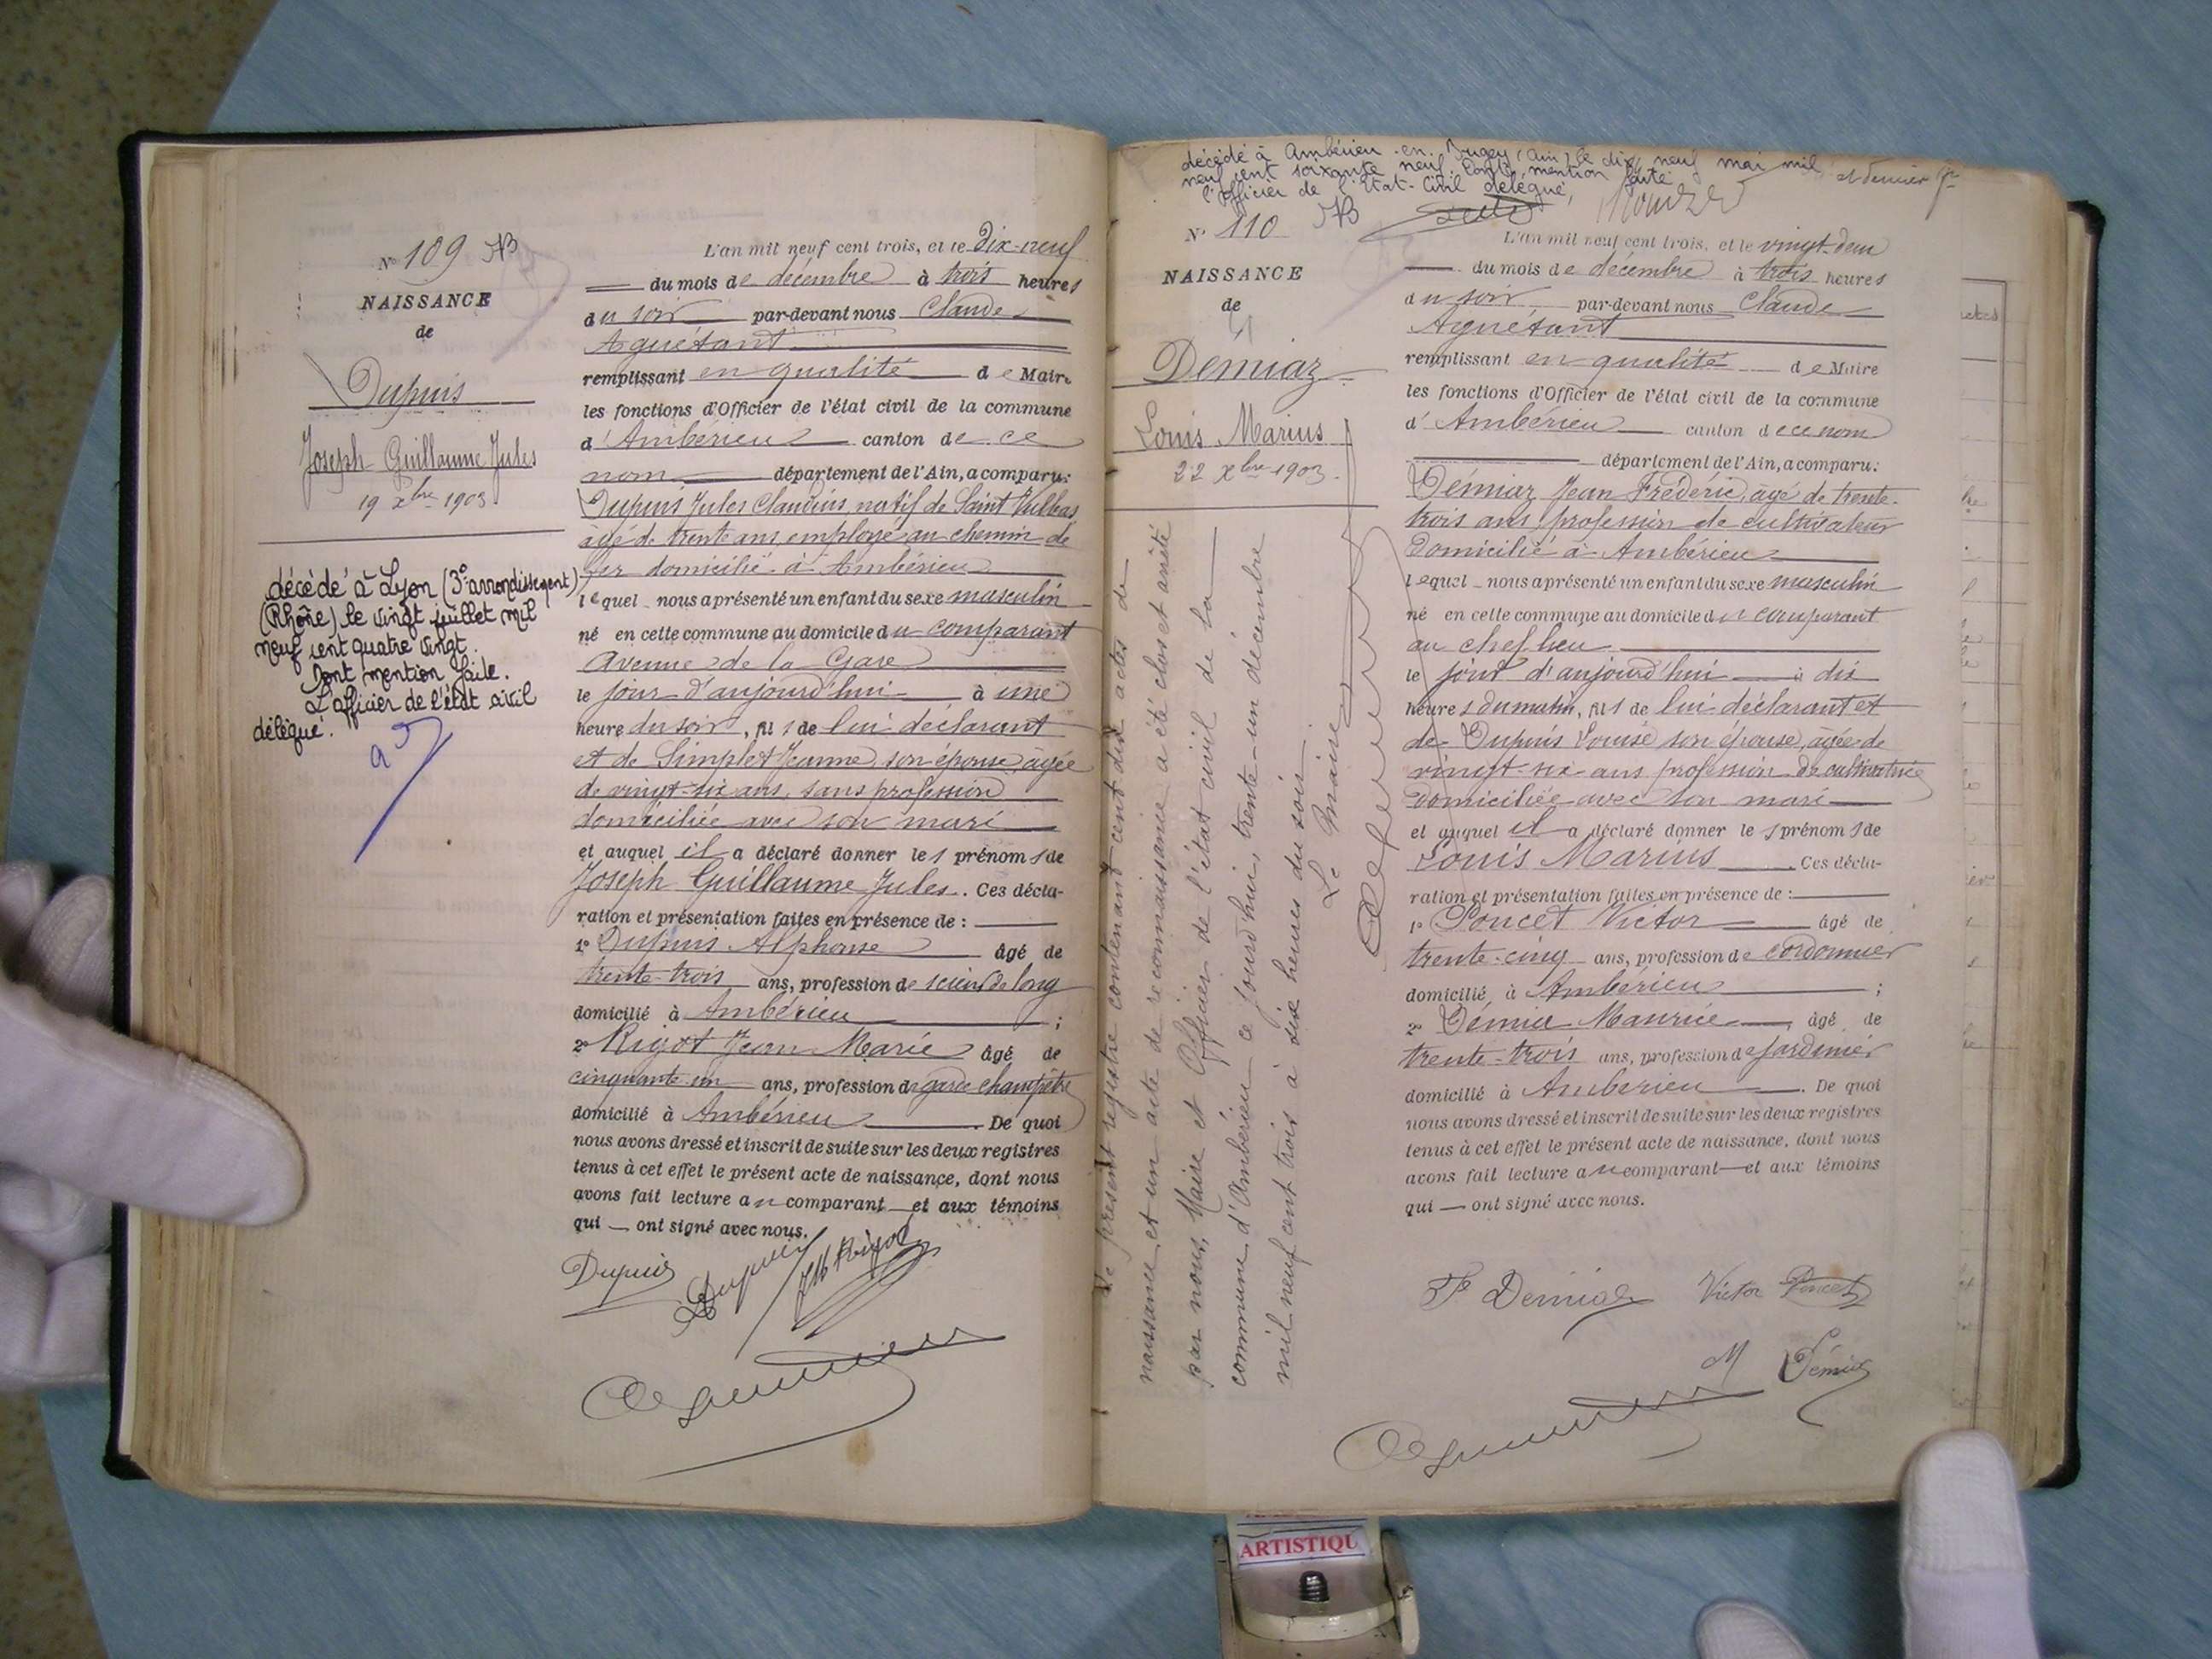 N° 109
NAISSANCE
de
Dupuis
Joseph Guillaume Jules
19 xbre 1903.
décédé à Lyon (3e arrondissement)
(Rhône) le vingt juillet mil
neuf cent quatre vingt.
Dont mention faite.
L'officier de l'état civil
délégué.
L'an mil neuf cent trois, et le Dix-neuf
du mois de décembre à trois heures
du soir par-devant nous Claude
Aguétant
remplissant en qualité de Maire
les fonctions d'Officier de l'état civil de la commune
d'Ambérieu canton de ce
nom département de l'Ain, a comparu:
Dupuis Jules Claudius, natif de Saint Vulbas
âgé de trente ans, employé au chemin de
fer domicilié à Ambérieu
lequel nous a présenté un enfant du sexe masculin
né en cette commune au domicile du comparant
Avenue de la Gare
le jour d'aujourd'hui à une
heure du soir, fils de lui déclarant
et de Simplet Jeanne, son épouse, âgée
de vingt-six ans, sans profession
domiciliée avec son mari
et auquel il a déclaré donner les prénoms de
Joseph Guillaume Jules. Ces décla-
ration et présentation faites en présence de :
1° Dupuis Alphonse âgé de
trente-trois ans, profession de scieur de long
domicilié à Ambérieu ;
2° Rigot Jean Marie âgé de
cinquante-un ans, profession de garde champêtre
domicilié à Ambérieu. De quoi
nous avons dressé et inscrit de suite sur les deux registres
tenus à cet effet le présent acte de naissance, dont nous
avons fait lecture au comparant et aux témoins
qui ont signé avec nous.
Dupuis Dupuis JM Rigot
décédé à Ambérieu-en-Bugey (Ain) le dix neuf mai mil
neuf cent soixante neuf. Dont mention faite
l'officier de l'Etat-Civil délégué,
et dernier
N° 110
NAISSANCE
de
Démiaz
Louis Marius
22 xbre 1903.
Le présent registre contenant cent dix actes de
naissance et un acte de reconnaissance a été clos et arrêté
par nous, Maire et Officier de l'état civil de la
commune d'Ambérieu ce jourd'hui trente-un décembre
mil neuf cent trois à six heures du soir.
Le Maire
L'an mil neuf cent trois, et le vingt-deux
du mois de décembre à trois heures
du soir par-devant nous Claude
Aguétant
remplissant en qualité de Maire
les fonctions d'Officier de l'état civil de la commune
d'Ambérieu canton de ce nom
département de l'Ain, a comparu:
Démiaz Jean Frédéric, âgé de trente-
trois ans, profession de cultivateur
domicilié à Ambérieu
lequel nous a présenté un enfant du sexe masculin
né en cette commune au domicile du comparant
au chef lieu
le jour d'aujourd'hui à dix
heures du matin, fils de lui déclarant et
de Dupuis Louise son épouse, âgée de
vingt-six ans profession de cultivatrice
domiciliée avec son mari
et auquel il a déclaré donner les prénoms de
Louis Marius. Ces décla-
ration et présentation faites en présence de :
1° Poncet Victor âgé de
trente-cinq ans, profession de cordonnier
domicilié à Ambérieu ;
2° Maurice, âgé de
trente-trois ans, profession de jardinier
domicilié à Ambérieu. De quoi
nous avons dressé et inscrit de suite sur les deux registres
tenus à cet effet le présent acte de naissance, dont nous
avons fait lecture au comparant et aux témoins
qui ont signé avec nous.
Demiaz Victor Poncet
M
ARTISTIQU